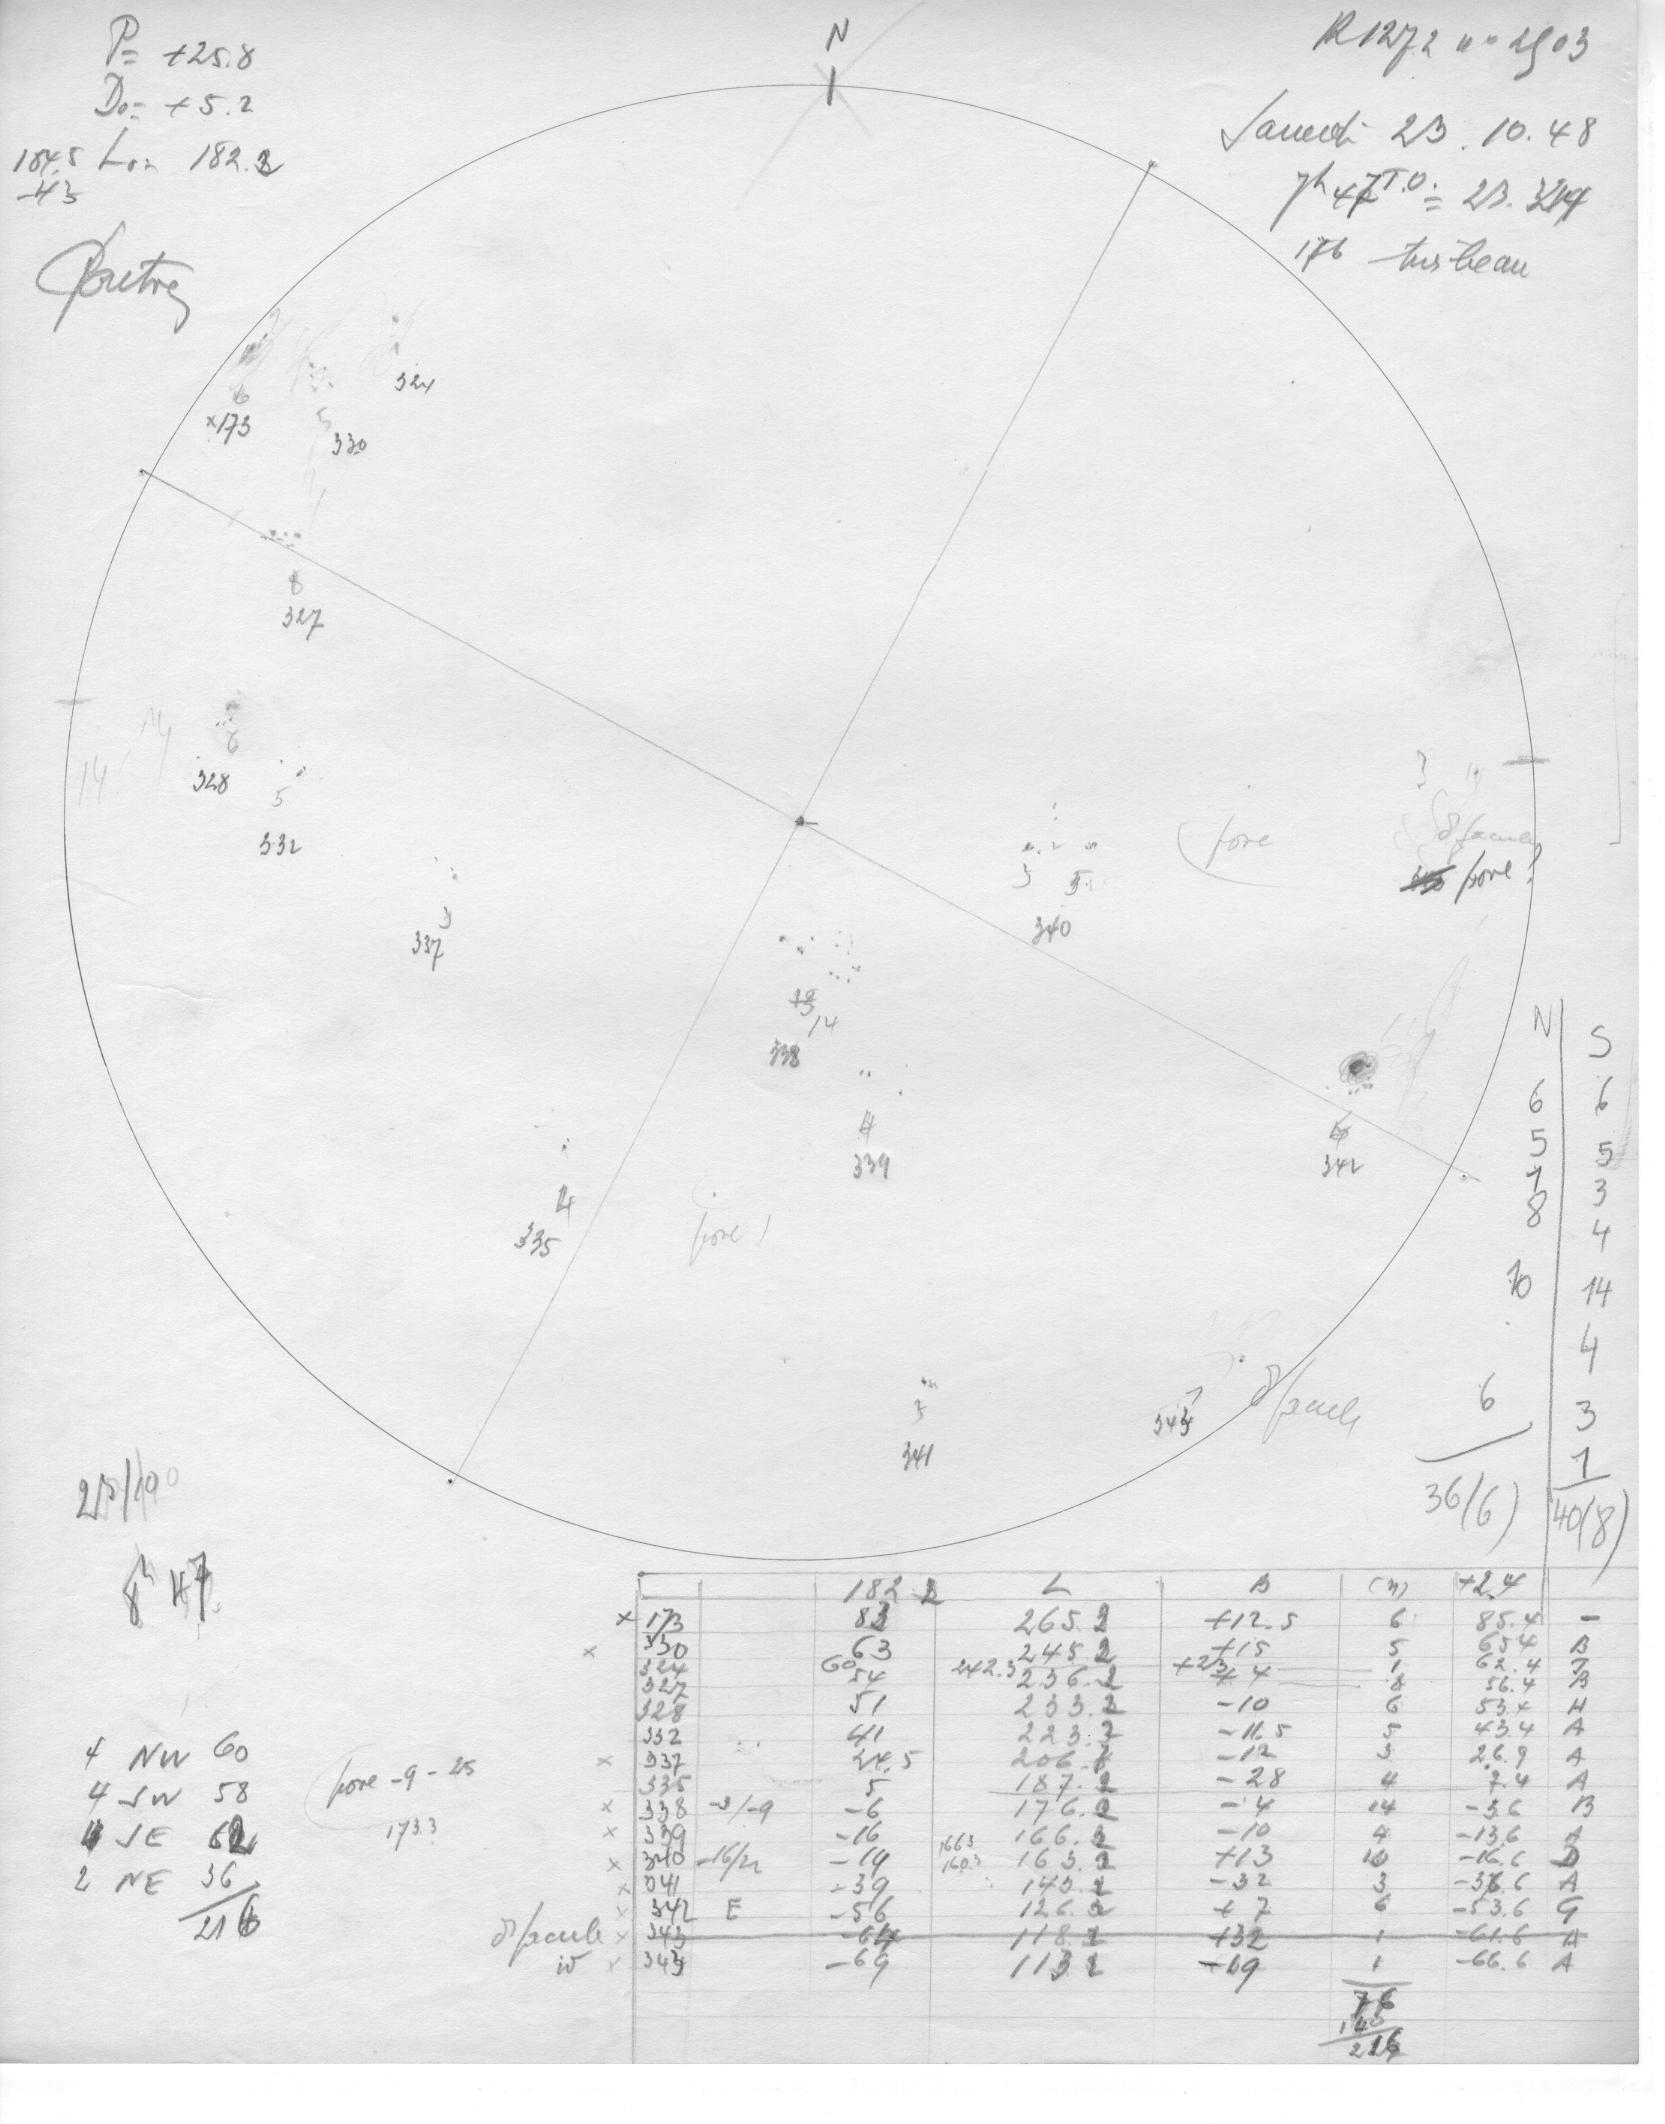 P= +25.8
D0= +5.2
184.5 L0= 182.2
-43
N
R1272 no 2903
Samedi 23.10.48
7h47 T.O. = 23.324
176 très beau
324
6
x173
5
330
8
327
6
328
14
5
332
3
337
pore
faculae
pore?
3 5
340
14
338
4
339
6
342
4
335
(pore)
3
341
1
343
faculae
N S
6 6
5 5
1 3
8 4
10 14
4
6 3
1
36(6) 40(8)
8h 47
4 NW 60
4 SW 58
4 SE 62
2 NE 36
216
pore -9 -25
173.3
182.2 L B (n) +2.4
x 173 83 265.2 +12.5 6 85.4 -
x 330 63 245.2 +15 5 65.4 B
324 60 242.3 +23 1 62.4 J
327 54 236.2 +4 8 56.4 B
328 51 233.2 -10 6 53.4 H
332 41 223.2 -11.5 5 43.4 A
x 337 24.5 206.7 -12 3 26.9 A
335 5 187.2 -28 4 7.4 A
x 338 -3/-9 -6 176.2 -4 14 -3.6 B
x 339 -16 166.2 -10 4 -13.6 A
x 340 -16/22 -19 166.3 160.3 163.2 +13 10 -16.6 D
x 341 -39 143.2 -32 3 -36.6 A
x 342 E -56 126.2 +7 6 -53.6 G
faculae x 343 -64 118.2 +32 1 -61.6 A
x 343 -69 113.2 -19 1 -66.6 A
76
140
216